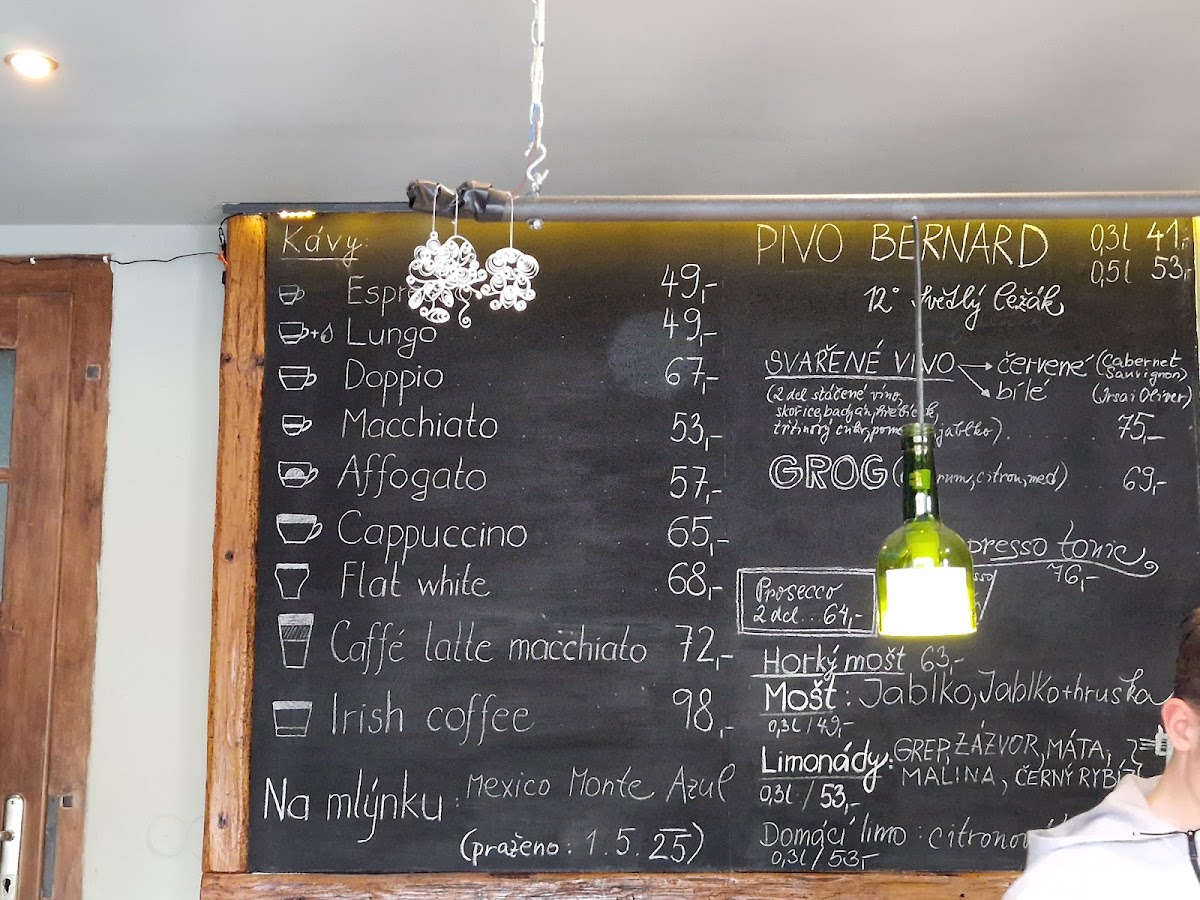 Kávy:
Lungo 49,-
49,-
Doppio 67,-
Macchiato 53,-
Affogato 57,-
Cappuccino 65,-
Flat white 68,-
Caffé latte macchiato 72,-
Irish coffee 98,-
Na mlýnku: Mexico Monte Azul
(praženo: 1.5.25)
PIVO BERNARD 0,3l 41,-
0,5l 53,-
12° světlý ležák
SVAŘENÉ VÍNO červené (Cabernet Sauvignon)
bílé (Irsai Oliver)
(2 dcl stáčené víno,
skořice, badyán, hřebíček,
třtinový cukr, jablko) 75,-
GROG rum, citron, med) 69,-
tonic
76,-
Prosecco
2 dcl.. 64,-
Horký mošt 63,-
Mošt: Jablko, Jablko+hruška
0,3l/49,-
Limonády: GREP, ZÁZVOR, MÁTA,
MALINA, ČERNÝ
0,3l / 53,-
Domácí limo:
0,3l/53,-